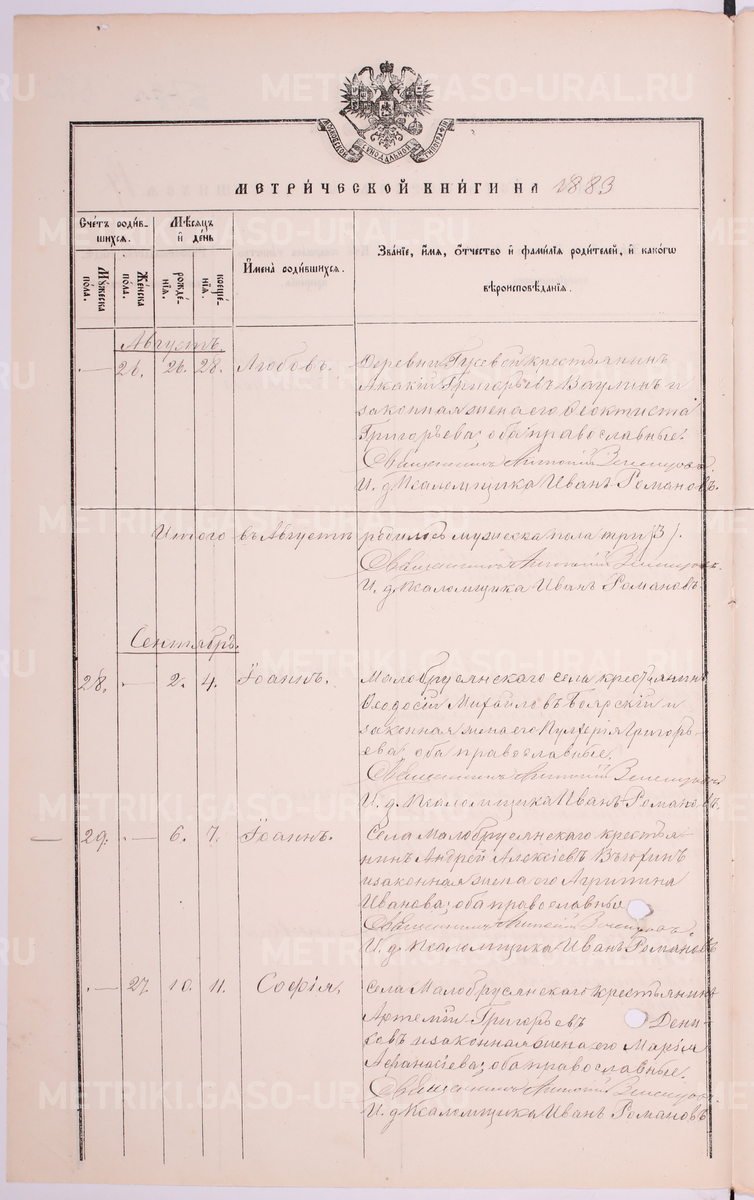 МОСКОВСКОЙ СѴНОДАЛЬНОЙ ТИПОГРАФІИ
МЕТРИ́ЧЕСКОЙ КНИ́ГИ НА 1883
Счетъ роди́вшихся.
Мѣ́сяцъ и день
Мꙋжеска по́ла.
Же́нска по́ла.
рожде́нїя.
креще́нїя.
И҆мена̀ роди́вшихся.
Зва́нїе, и҆́мя, ѻ҆́тчество и҆ фами́лїѧ роди́телей, и҆ како́гѡ
вѣроисповѣ́данїя.
Августъ.
— 26. 26. 28. Любовь. Деревни Гусевой крестьянинъ
Акакій Григорьевъ Ваулинъ и
законная жена его Ѳеоктиста
Григорьева; оба православные.
Священникъ Антоній
И. д. Псаломщика Иванъ Романовъ.
Итого въ Августѣ родилось мужеска пола три (3).
Священникъ Антоній
И. д. Псаломщика Иванъ Романовъ.
Сентябрь.
28. — 2. 4. Іоаннъ. Малобрусянскаго села крестьянинъ
Ѳеодосій Михайловъ Боярскій и
законная жена его Пулхерія Григорь-
ева, оба православные.
Священникъ Антоній
И. д. Псаломщика Иванъ Романовъ.
29. — 6. 7. Іоаннъ. Села Малобрусянскаго крестья-
нинъ Андрей Алексіевъ
и законная жена его Агрипина
Иванова; оба православные
Священникъ Антоній
И. д. Псаломщика Иванъ Романовъ
— 27. 10. 11. Софія. Села Малобрусянскаго крестьянинъ
Артемій Григорьевъ Дени-
совъ и законная жена его Марія
Аѳанасіева; оба православные.
Священникъ Антоній
И. д. Псаломщика Иванъ Романовъ
METRIKI.GASO-URAL.RU